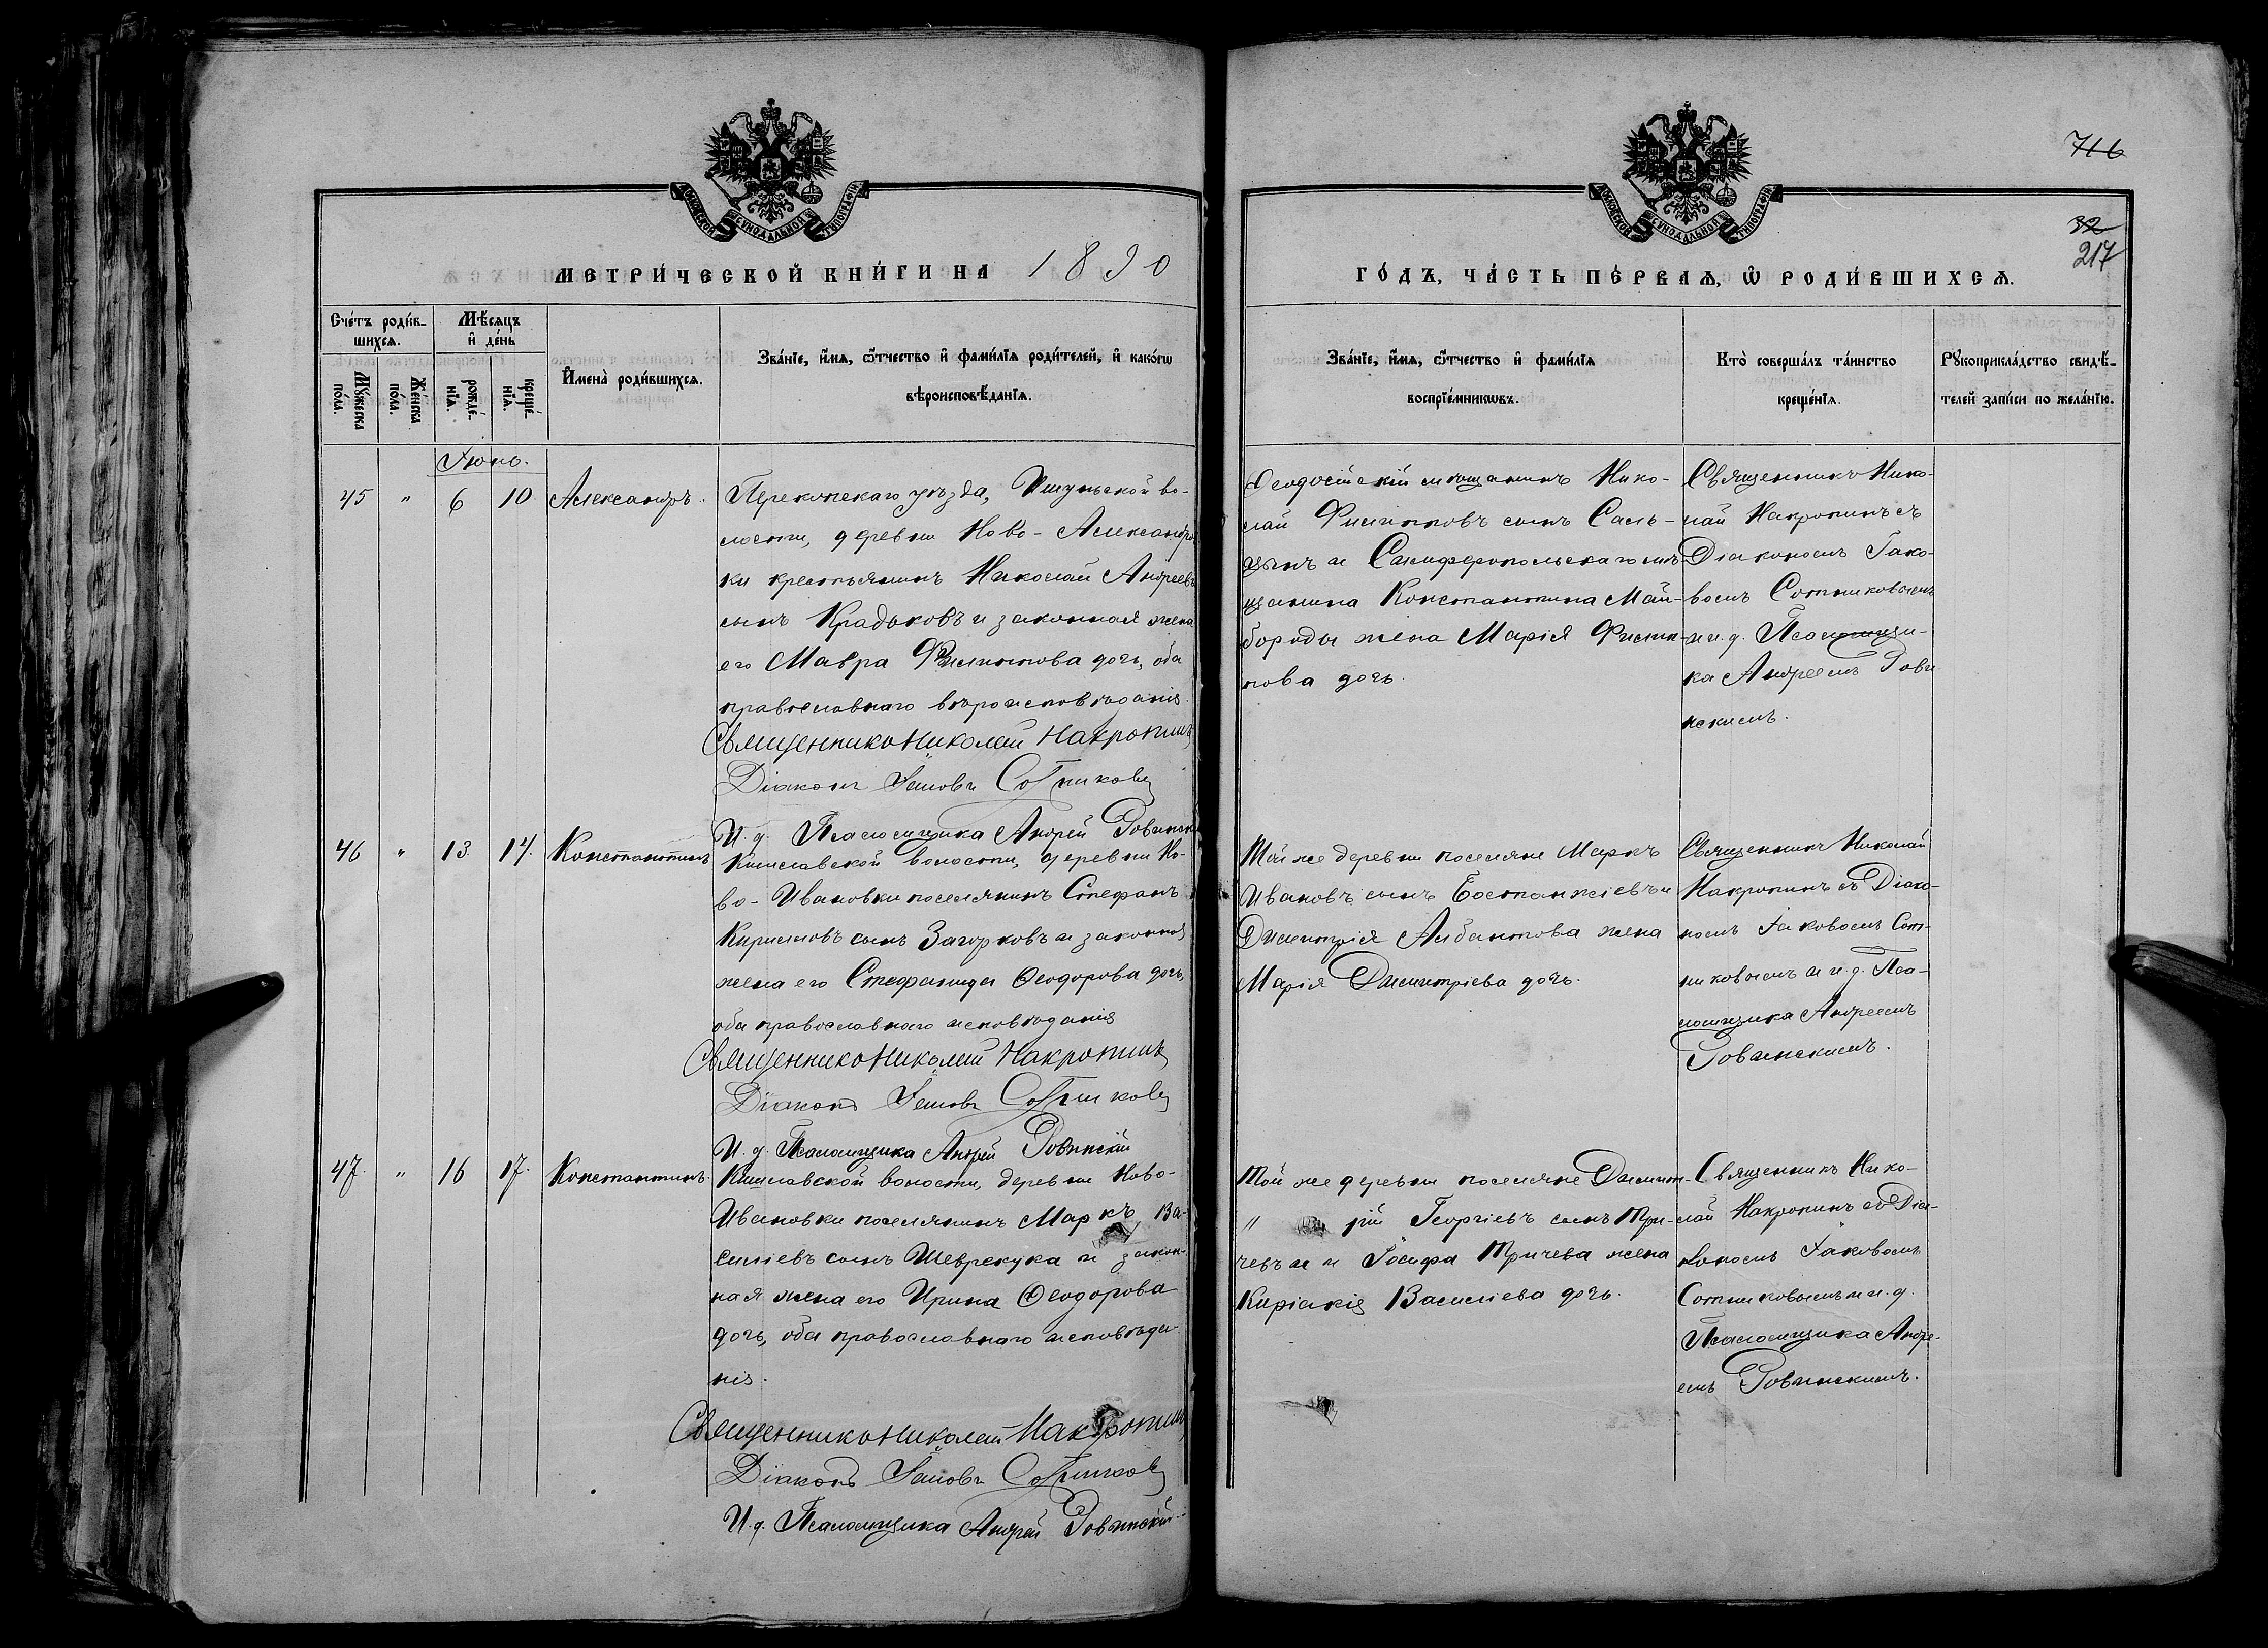 716
32
217
МЕТРИ́ЧЕСКОЙ КНИ́ГИ НА 1890
ГО́ДЪ, ЧА́СТЬ ПЕ́РВАѦ, Ѿ РОДИ́ВШИХСѦ.
Сче́тъ роди́в-
шихсѧ.
Мꙋ́жеска
по́ла.
Же́нска
по́ла.
Мѣ́сѧцъ
и҆ де́нь
рожде́-
нїѧ.
креще́-
нїѧ.
И҆мена̀ роди́вшихсѧ.
Зва́нїе, и҆́мѧ, ѻ҆́тчество и҆ фами́лїѧ роди́телей, и҆ како́гѡ
вѣроисповѣ́данїѧ.
Зва́нїе, и҆́мѧ, ѻ҆́тчество и҆ фами́лїѧ
воспрїе́мникѡвъ.
Кто̀ соверша́лъ та́инство
креще́нїѧ.
Рꙋкоприкла́дство свидѣ́-
телей за́писи по жела́нїю.
Іюнь.
45 " 6 10 Александръ.
Перекопскаго уѣзда, Ишуньской во-
лости, деревни Ново-Александров
ки крестьянинъ Николай Андреевъ
сынъ Крадьковъ и законная жена
его Мавра Филиппова дочь, оба
православнаго вѣроисповѣданія.
Священникъ Николай Макропинъ
Діаконъ Іаковъ Сотниковъ
И. д. Псаломщика Андрей Ровинскій
Ѳеодосійскій мѣщанинъ Нико-
лай Филипповъ сынъ Саль-
цынъ и Симферопольскаго мѣ-
щанина Константина Май-
бороды жена Марія Филип-
пова дочь.
Священникъ Нико-
лай Макропинъ съ
Діакономъ Іако-
вомъ Сотниковымъ
и и. д. Псаломщи-
ка Андреемъ Рови
нскимъ.
46 " 13 14. Константинъ
Кишлавской волости, деревни Но-
во-Ивановки поселянинъ Стефанъ
Кирилловъ сынъ Загорковъ и законная
жена его Стефанида Ѳеодорова дочь,
оба православнаго исповѣданія
Священникъ Николай Макропинъ
Діаконъ Іаковъ Сотниковъ
И. д. Псаломщика Андрей Ровинскій
Той же деревни поселяне Маркъ
Ивановъ сынъ Бостанжіевъ и
Димитрія Албантова жена
Марія Димитріева дочь.
Священникъ Николай
Макропинъ съ Діако-
номъ Іаковомъ Сот-
никовымъ и и. д. Пса-
ломщика Андреемъ
Ровинскимъ.
47. " 16 17. Константинъ.
Кишлавской волости, деревни Ново-
Ивановки поселянинъ Маркъ Ва-
силіевъ сынъ Шеврекука и закон-
ная жена его Ирина Ѳеодорова
дочь, оба православнаго исповѣда-
нія.
Священникъ Николай Макропинъ
Діаконъ Іаковъ Сотниковъ
И. д. Псаломщика Андрей Ровинскій
Той же деревни поселяне Димит-
" рій Георгіевъ сынъ Три-
чевъ и и Іосифа Тричева жена
Киріакія Василіева дочь.
Священникъ Нико-
лай Макропинъ съ Діа-
кономъ Іаковомъ
Сотниковымъ и и. д.
Псаломщика Андре-
емъ Ровинскимъ.